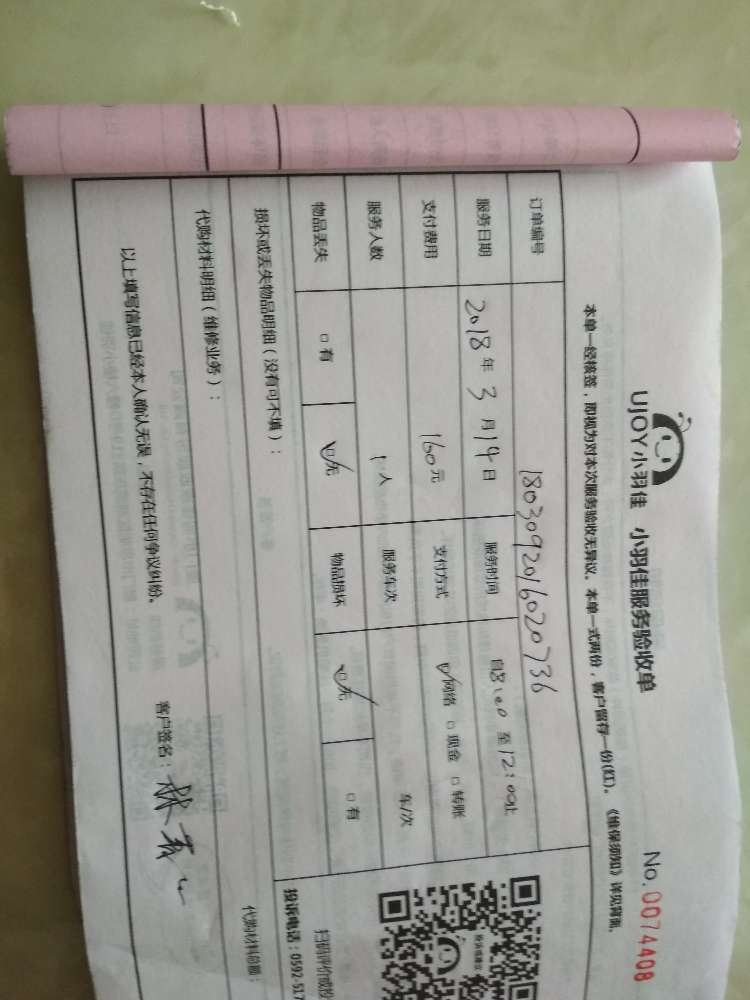 UJOY小羽佳 小羽佳服务验收单
No.0074408
本单一经核签，即视为对本次服务验收无异议。本单一式两份，客户留存一份(红)。《维保须知》详见背面。
订单编号 1803092016020736
服务日期 2018年3月14日 服务时间 自8:00至12:00止
支付费用 160元 支付方式 ☑网络 □现金 □转账
服务人数 1人 服务车次 车/次
物品丢失 □有 ☑无 物品损坏 ☑无 □有
损坏或丢失物品明细（没有可不填）：
代购材料明细（维修业务）：
代购材料总额：
以上填写信息已经本人确认无误，不存在任何争议纠纷。
客户签名：
投诉电话：0592-517